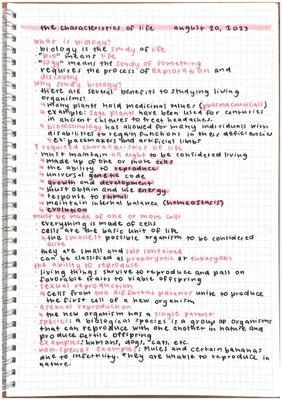 the characteristics of life august 20, 2023
what is biology?
biology is the study of life
"bio" means life
"logy" means the study of something
requires the process of exploration and
discovery
why study biology?
there are several benefits to studying living
organisms!
many plants hold medicinal values (pharmaceuticals)
example: sage plants have been used for centuries
in ancient cultures to help headaches.
biotechnology has allowed for many individuals with
disabilities to regain functions in their deficiencies
ex: pacemakers and artificial limbs
8 required characteristics of life
must maintain all eight to be considered living
made up of one or more cells
the ability to reproduce
universal genetic code
growth and development
must obtain and use energy
response to stimuli
maintain internal balance (homeostasis)
evolution
must be made of one or more cells
everything is made of cells
cells are the basic unit of life
the smallest possible organism to be considered
alive
they are small and self contained
can be classified as prokaryotic or eukaryotic
the ability to reproduce
living things survive to reproduce and pass on
favorable traits to viable offspring
sexual reproduction
cells from two different parents unite to produce
the first cell of a new organism
asexual reproduction
the new organism has a single parent
species: a biological species is a group of organisms
that can reproduce with one another in nature and
produce fertile offspring
examples: humans, dogs, cats, etc.
non-species examples: mules and certain bananas
due to infertility. They are unable to reproduce in
nature.